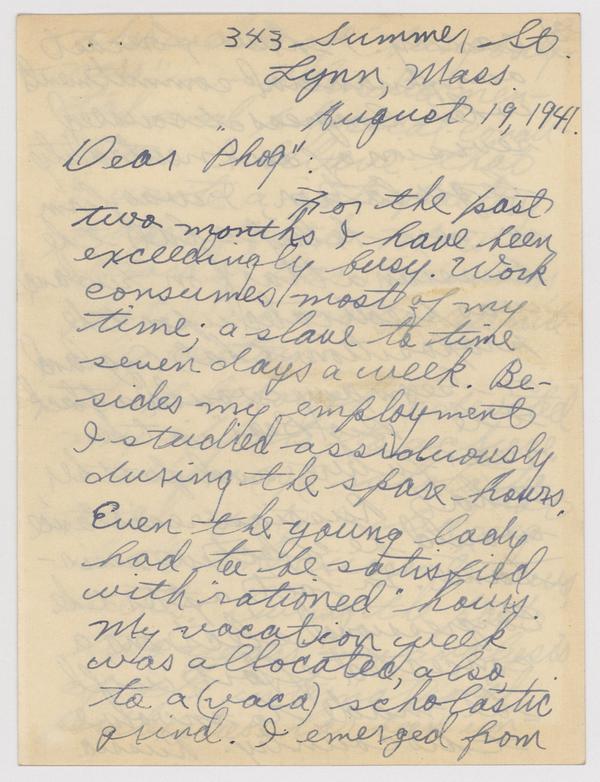 343 Summer St.
Lynn, Mass.
August 19, 1941.
Dear "Phog":
For the past
two months I have been
exceedingly busy. Work
consumes most of my
time; a slave to time
seven days a week. Be-
sides my employment
I studied assiduously
during the spare hours.
Even the young lady
had to be satisfied
with "rationed" hours.
My vacation week
was allocated, also,
to a (vaca) scholastic
grind. I emerged from